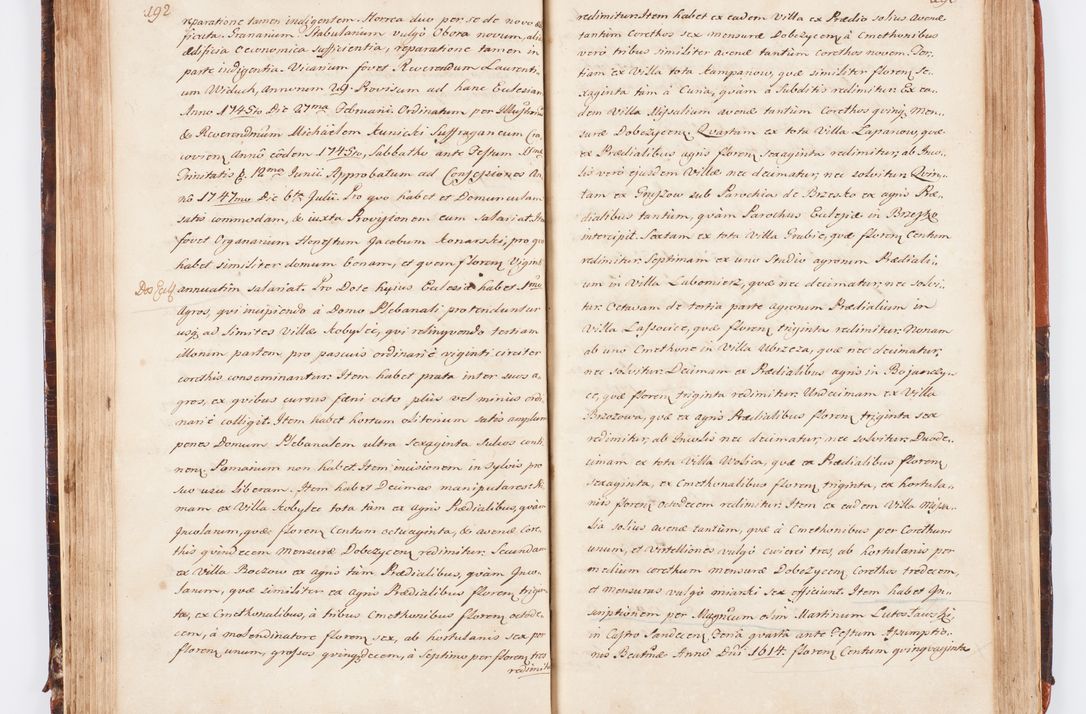 192
reparatione tamen indigentem. Horrea duo per se de novo ædi
ficata. Granarium. Stabularium vulgò Obora novum, alia
ædificia Oeconomica sufficientia, reparatione tamen in
parte indigentia. Vicarium fovet Reverendum Laurenti-
um Widuch, Annorum 29. Provisum ad hanc Ecclesiam
Anno 1745to Die 27ma Februarii. Ordinatum per Illustrem
& Reverendmum Michäelem Kunicki Suffraganeum Cra
coviensem Annô eôdem 1745to, Sabbatho ante Festum SSmæ
Trinitatis d. 12ma Junii. Approbatum ad Confessiones An
nô 1747mo Die 6ta Julii. Pro quo habet et Domunculam
satis commodam, & iuxta Provisionem eum salariat. Item
fovet Organarium Honestum Jacobum Konarski, pro quo
habet similiter domum bonam, et quem floren Viginti
Dos Eccl annuatim salariat. Pro Dote hujus Ecclesiæ habet 1mo
Agros, qui incipiendo à Domo Plebanali protenduntur
usq ad Limites Villæ Kobylec, qui relinquendo tertiam
illorum partem pro pascuis ordinariè viginti circiter
corethis conseminantur. Item habet prata inter suos a-
gros, ex quibus currus fœni octo plus vel minus ordi
nariè colligit. Item habet hortum olitorium satis amplum
penes Domum Plebanalem ultra Sexaginta Sulcos conti
nen. Pomarium non habet. Item incisionem in sylvis pro
suo usu liberam. Item habet Decimas manipulares et 1
mam ex Villa Kobylec tota tàm ex agris Prædialibus, quàm
Incolarum, quæ floren Centum octuaginta, & avenæ Core
this quindecem mensuræ Dobczycen redimitur. Secundam
ex Villa Boczow ex agris tàm Prædialibus, quàm Inco
larum, quæ similiter ex agris Prædialibus floren trigin
ta, ex Cmethonalibus, à tribus Cmethonibus floren octode
cem, à molendinatore floren sex, ab hortulanis sex per
floren unum, grossos quinqdecem, à septimo per floren tres
redimitur
redimitur. Item habet ex eadem Villa ex Prædio solius avenæ
tantùm Corethos sex mensuræ Dobczycen à Cmethonibus
verò tribus similiter avenæ tantùm corethos novem. Ter-
tiam ex Villa tota Kampanow, quæ similiter floren se-
xaginta tàm à Curia, quàm à Subditis redimitur. Ex ea-
dem Villa Missalium avenæ tantùm Corethos quinq men-
suræ Dobczycen. Quartam ex tota Villa Łapanow, quæ
ex Prædialibus agris floren sexaginta redimitur, ab Inco-
lis verò ejusdem Villæ nec decimatur, nec solvitur. Quin-
tam ex Gryżow sub Parochia de Brzesko ex agris Præ-
dialibus tantùm, quàm Parochus Ecclesiæ in Brzesko
intercipit. Sextam ex tota Villa Grabie, quæ floren Centum
redimitur. Septimam ex uno Studio agrorum Prædiali-
um in Villa Lubomierz, quæ nec decimatur, nec solvi-
tur. Octavam de tertia parte agrorum Prædialium in
Villa Lassocice, quæ floren triginta redimitur. Nonam
ab uno Cmethone in Villa Ubrzeza, quæ nec decimatur,
nec solvitur. Decimam ex Prædialibus agris in Bojanczy-
ce, quæ floren triginta redimitur. Undecimam ex Villa
Brzozowa, quæ ex agris Prædialibus floren triginta sex
redimitur, ab Incolis nec decimatur, nec solvitur. Duode-
cimam ex tota Villa Wolica, quæ ex Prædialibus floren
sexaginta, ex Cmethonalibus floren triginta, ex hortula-
nis floren octodecem redimitur. Item ex eadem Villa Missa-
lia solius avenæ tantùm, quæ à Cmethonibus per Corethum
unum, et Virtelliones vulgò cwierci tres, ab hortulanis per
medium corethum mensuræ Dobczycen Corethos tredecem,
et mensuras vulgò miarki sex efficiunt. Item habet In-
scriptionem per Magficum olim Martinum Lutosławski
in Castro Sandecen Feria quarta ante Festum Assumptio-
nis Beatmæ Annô Dni 1614. floren Centum quinquaginta